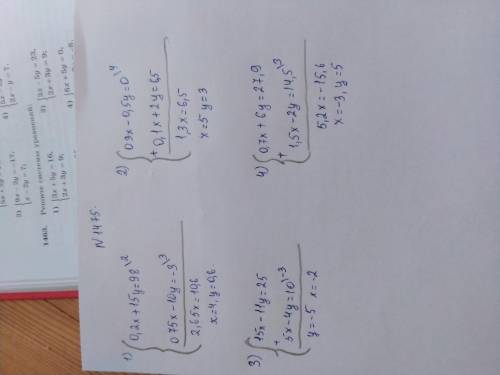 1463. Решите системы уравнений:
1) {3x + 5y = 16,
{2x + 3y = 9;
{x - 2y = 7;
3) {
{2x + 3y = 9;
4) {6x + 5y = 0,
N 1475.
1) {0,2x+15y=98 \2
{0,75x-10y=-9 \3
2,65x=10,6
x=4, y=0,6.
2) {0,3x-0,5y=0 \4
+ {0,1x+2y=6,5
1,3x=6,5
x=5 y=3
3) {15x-11y=25
+ {5x-4y=10 \-3
y=-5 x=-2
4) {0,7x+6y=27,9
+ {1,5x-2y=14,5 \3
5,2x=-15,6
x=-3, y=5